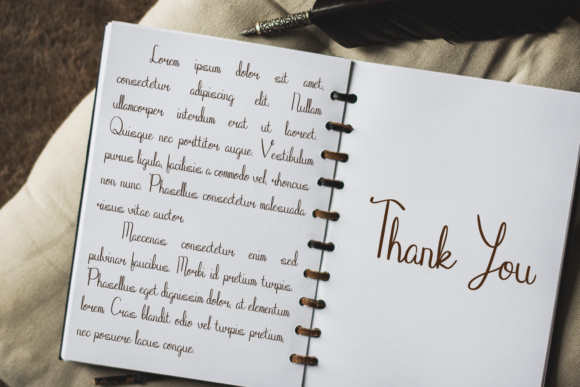 Lorem ipsum dolor sit amet,
consectetur adipiscing elit. Nullam
ullamcorper interdum erat ut laoreet.
Quisque nec porttitor augue. Vestibulum
purus ligula, facilisis a commodo vel, rhoncus
non nunc. Phasellus consectetur malesuada
risus vitae auctor.
Maecenas consectetur enim sed
pulvinar faucibus. Morbi id pretium turpis.
Phasellus eget dignissim dolor, at elementum
lorem. Cras blandit odio vel turpis pretium,
nec posuere lacus congue.
Thank You